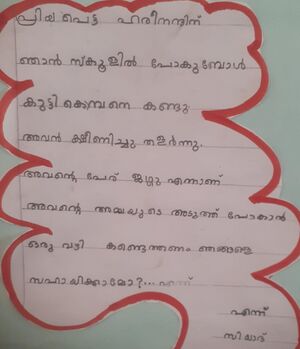 പ്രിയപെട്ട ഹരിനന്ദിന്
ഞാൻ സ്കൂളിൽ പോകുബോൾ
കുട്ടികൊമ്പനെ കണ്ടു
അവൻ ക്ഷീണിച്ചു തളർന്നു.
അവന്റെ പേര് ജഗ്ഗു എന്നാണ്
അവന്റെ അമ്മയുടെ അടുത്ത് പോകാൻ
ഒരു വഴി കണ്ടെത്തണം ഞങ്ങളെ
സഹായിക്കാമോ?...
എന്ന്
സിയാദ്